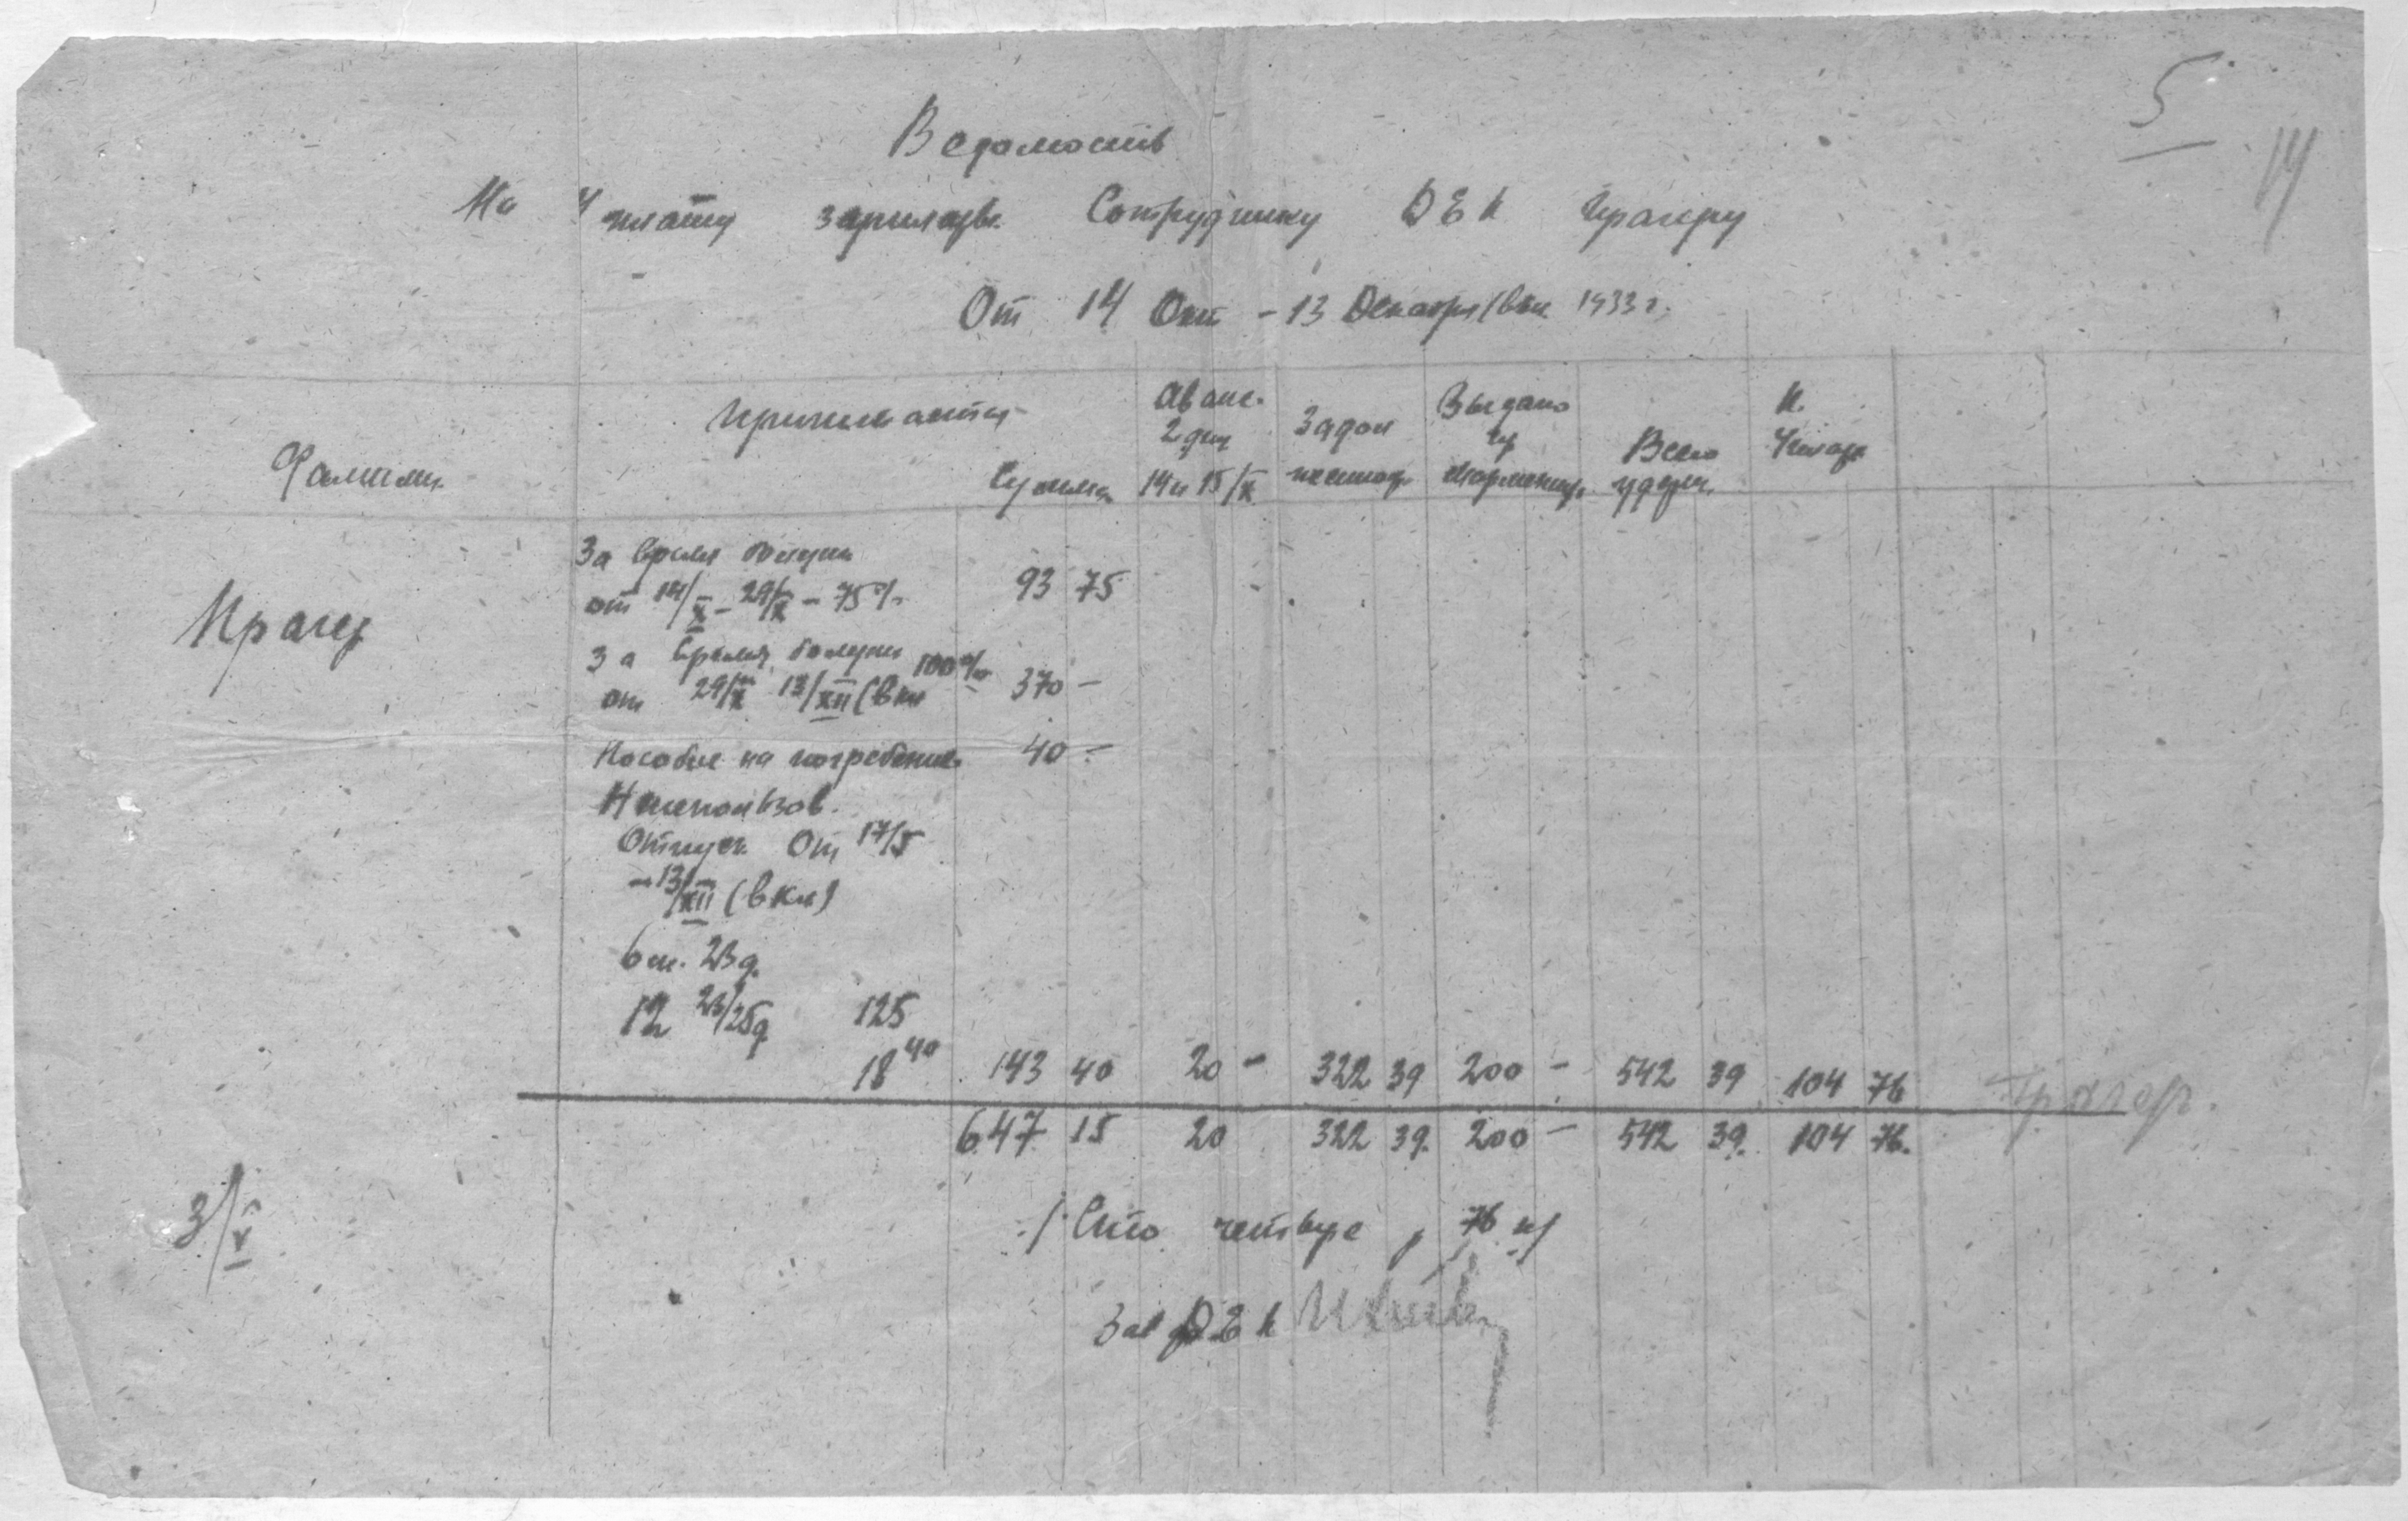 5
14
Ведомость
На уплату зарплаты Сотруднику ДЕК Прагеру
От 14 Окт - 13 Декабря (вкл. 1933 г.
Фамилия
Причитается
Сумма
Аванс. 2 дня 14 и 15/X
Задол
Выдано
Всего удерж.
К. Уплате
Прагер
За время болезни
от 14/X - 29/X - 75%
93 75
За время болезни 100%
от 29/X 13/XII (вкл
370 -
Пособие на погребение
40 -
Неиспользов.
Отпуск. От 17/5
- 13/XII (вкл)
6 м. 23 д.
12 23/25 д.
125
18 40
143 40 20 - 322 39 200 - 542 39 104 76
Прагер.
647 15 20 322 39. 200 - 542 39. 104 76.
3/V
/ Сто четыре р 76 к/
Зав ДЕК